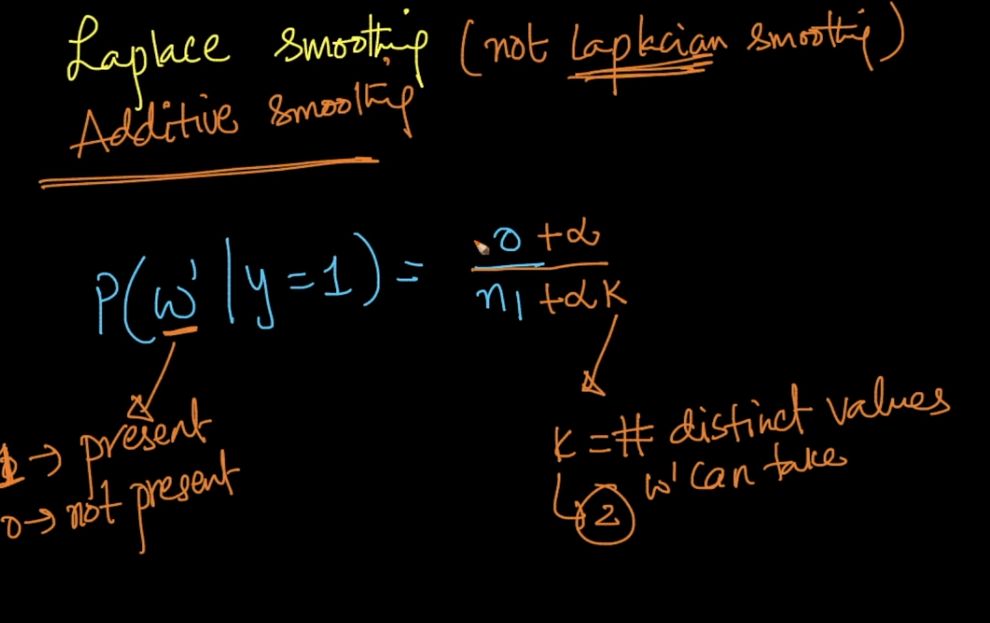 Laplace smoothing (not Laplacian smoothing)
Additive smoothing
P(w' | y=1) = 0 +α / n1 +αK
1 → present
0 → not present
K = # distinct values
w' can take
2